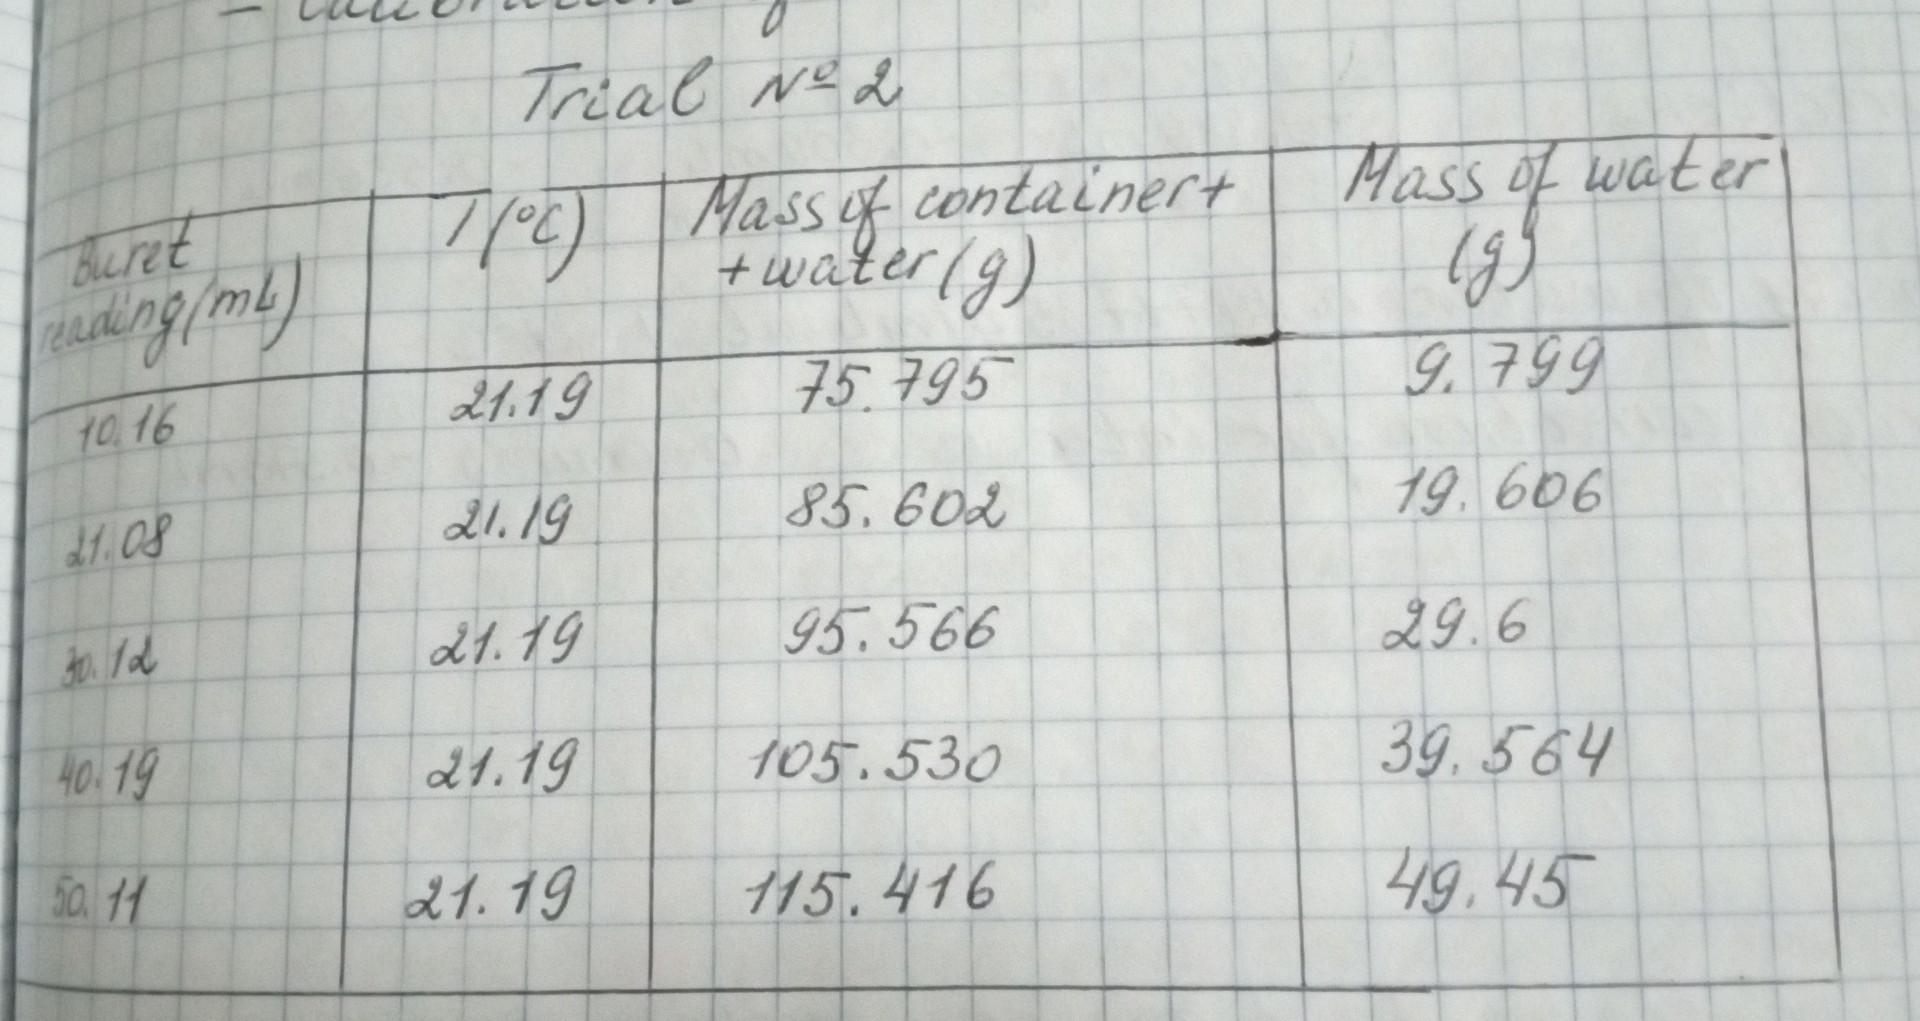 Trial № 2
Buret reading (mL) T (°C) Mass of container + + water (g) Mass of water (g)
10.16 21.19 75.795 9.799
21.08 21.19 85.602 19.606
30.12 21.19 95.566 29.6
40.19 21.19 105.530 39.564
50.11 21.19 115.416 49.45